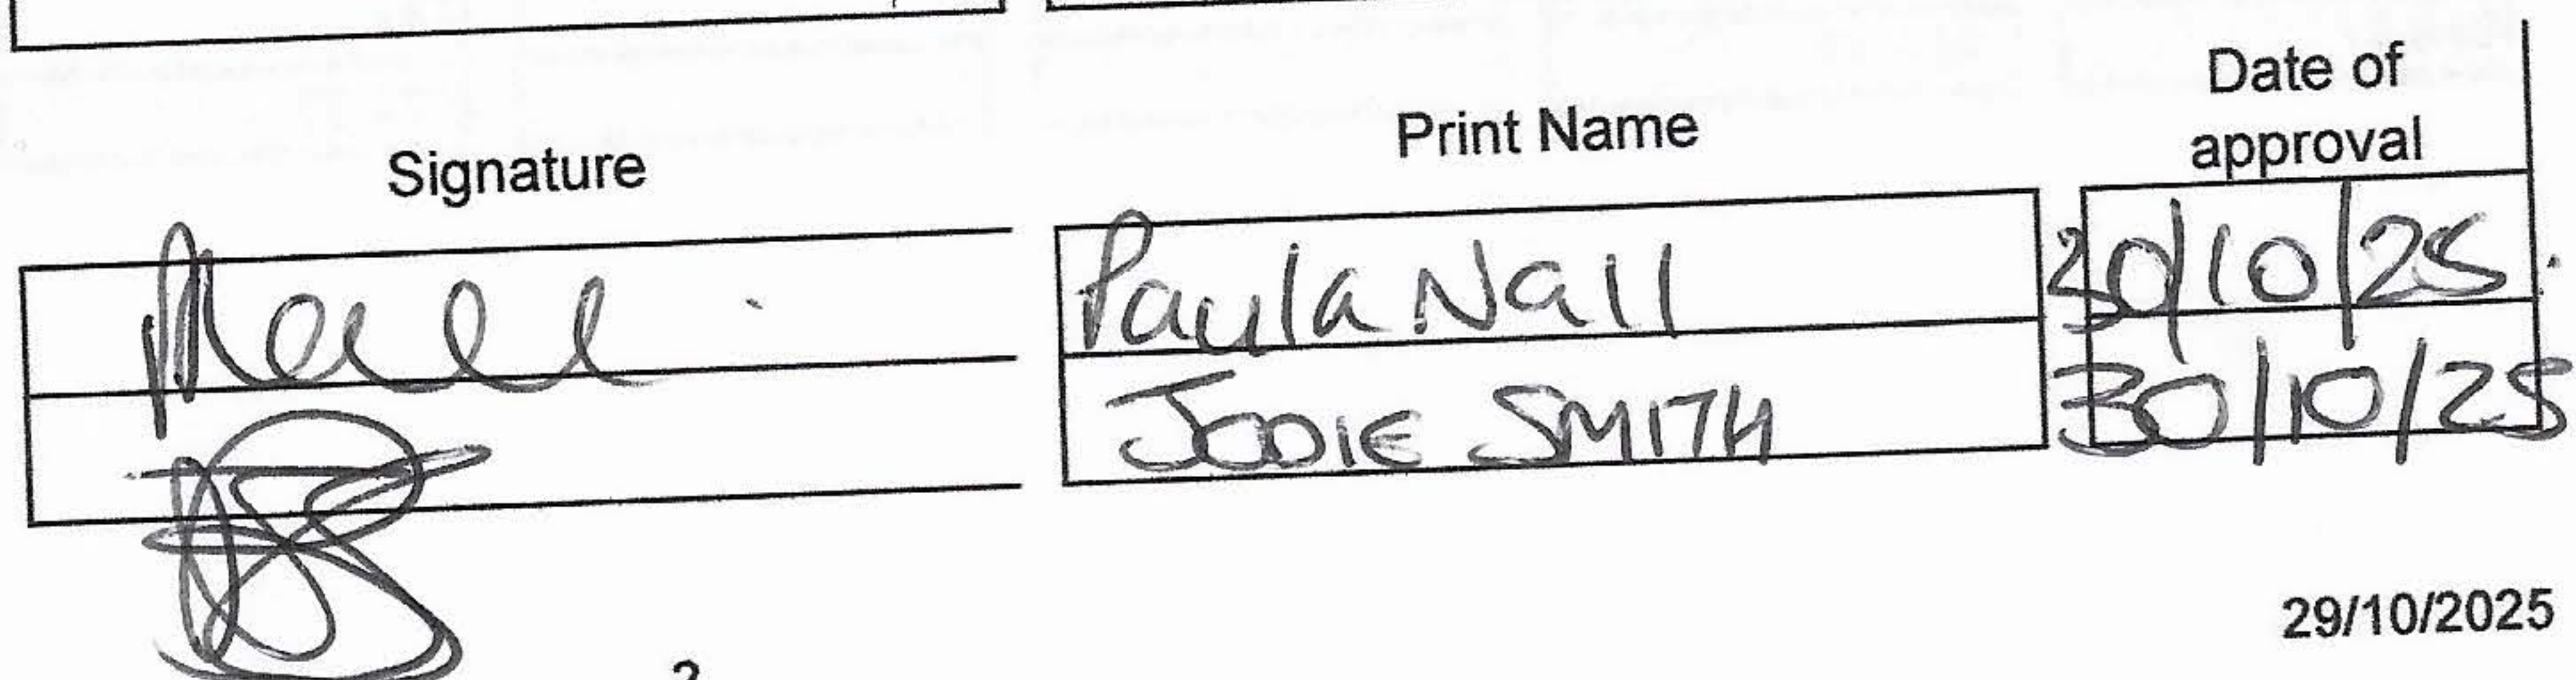 Signature Print Name Date of approval
Paula Nall 30/10/25.
JODIE SMITH 30/10/25
29/10/2025
2